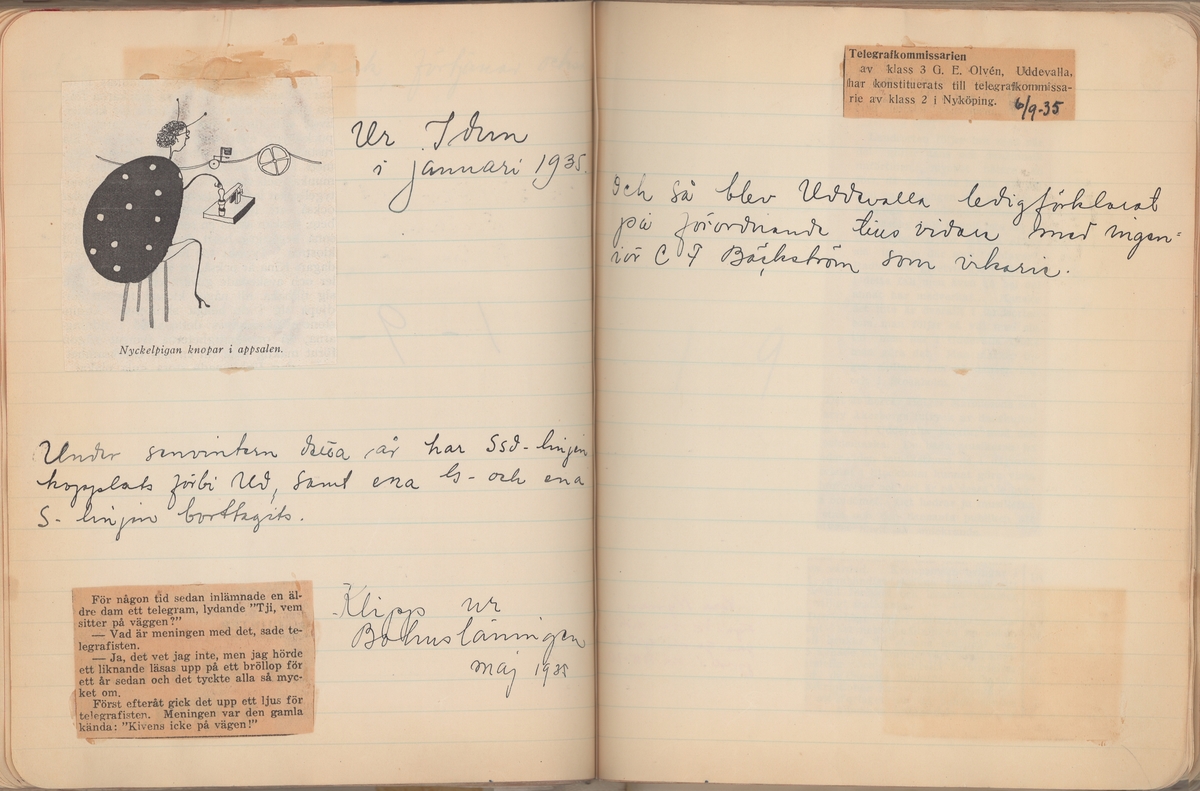 Ur Idun
i januari 1935.
Nyckelpigan knopar i appsalen.
Under senvintern detta år har Ssd-linjen
kopplats förbi Ud, samt ena Ls- och ena
S- linjen borttagits.
För någon tid sedan inlämnade en äl-
dre dam ett telegram, lydande "Tji, vem
sitter på väggen?"
— Vad är meningen med det, sade te-
legrafisten.
— Ja, det vet jag inte, men jag hörde
ett liknande läsas upp på ett bröllop för
ett år sedan och det tyckte alla så myc-
ket om.
Först efteråt gick det upp ett ljus för
telegrafisten. Meningen var den gamla
kända: "Kivens icke på vägen!"
Klipp ur
Bohusläningen
maj 1935
Telegrafkommissarien
av klass 3 G. E. Olvén, Uddevalla,
har konstituerats till telegrafkommissa-
rie av klass 2 i Nyköping. 6/9-35
Och så blev Uddevalla ledigförklarat
på förordnande tills vidare med ingen=
iör C F Bäckström som vikarie.